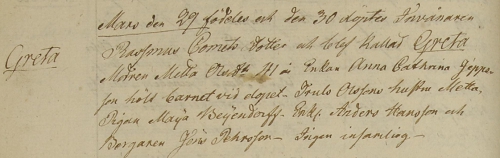 Greta
Mars den 29 föddes och den 30 döptes Invånaren
Comets Dotter och blef kallad Greta
Modren Metta 41 år Enkan Anna Cathrina Jepps-
son hölt barnet vid dopet. Truls Olssons hustru Metta,
Pigan Maija Beijendorff. Anders Hansson och
Borgaren Jöns Pehrsson. Ingen